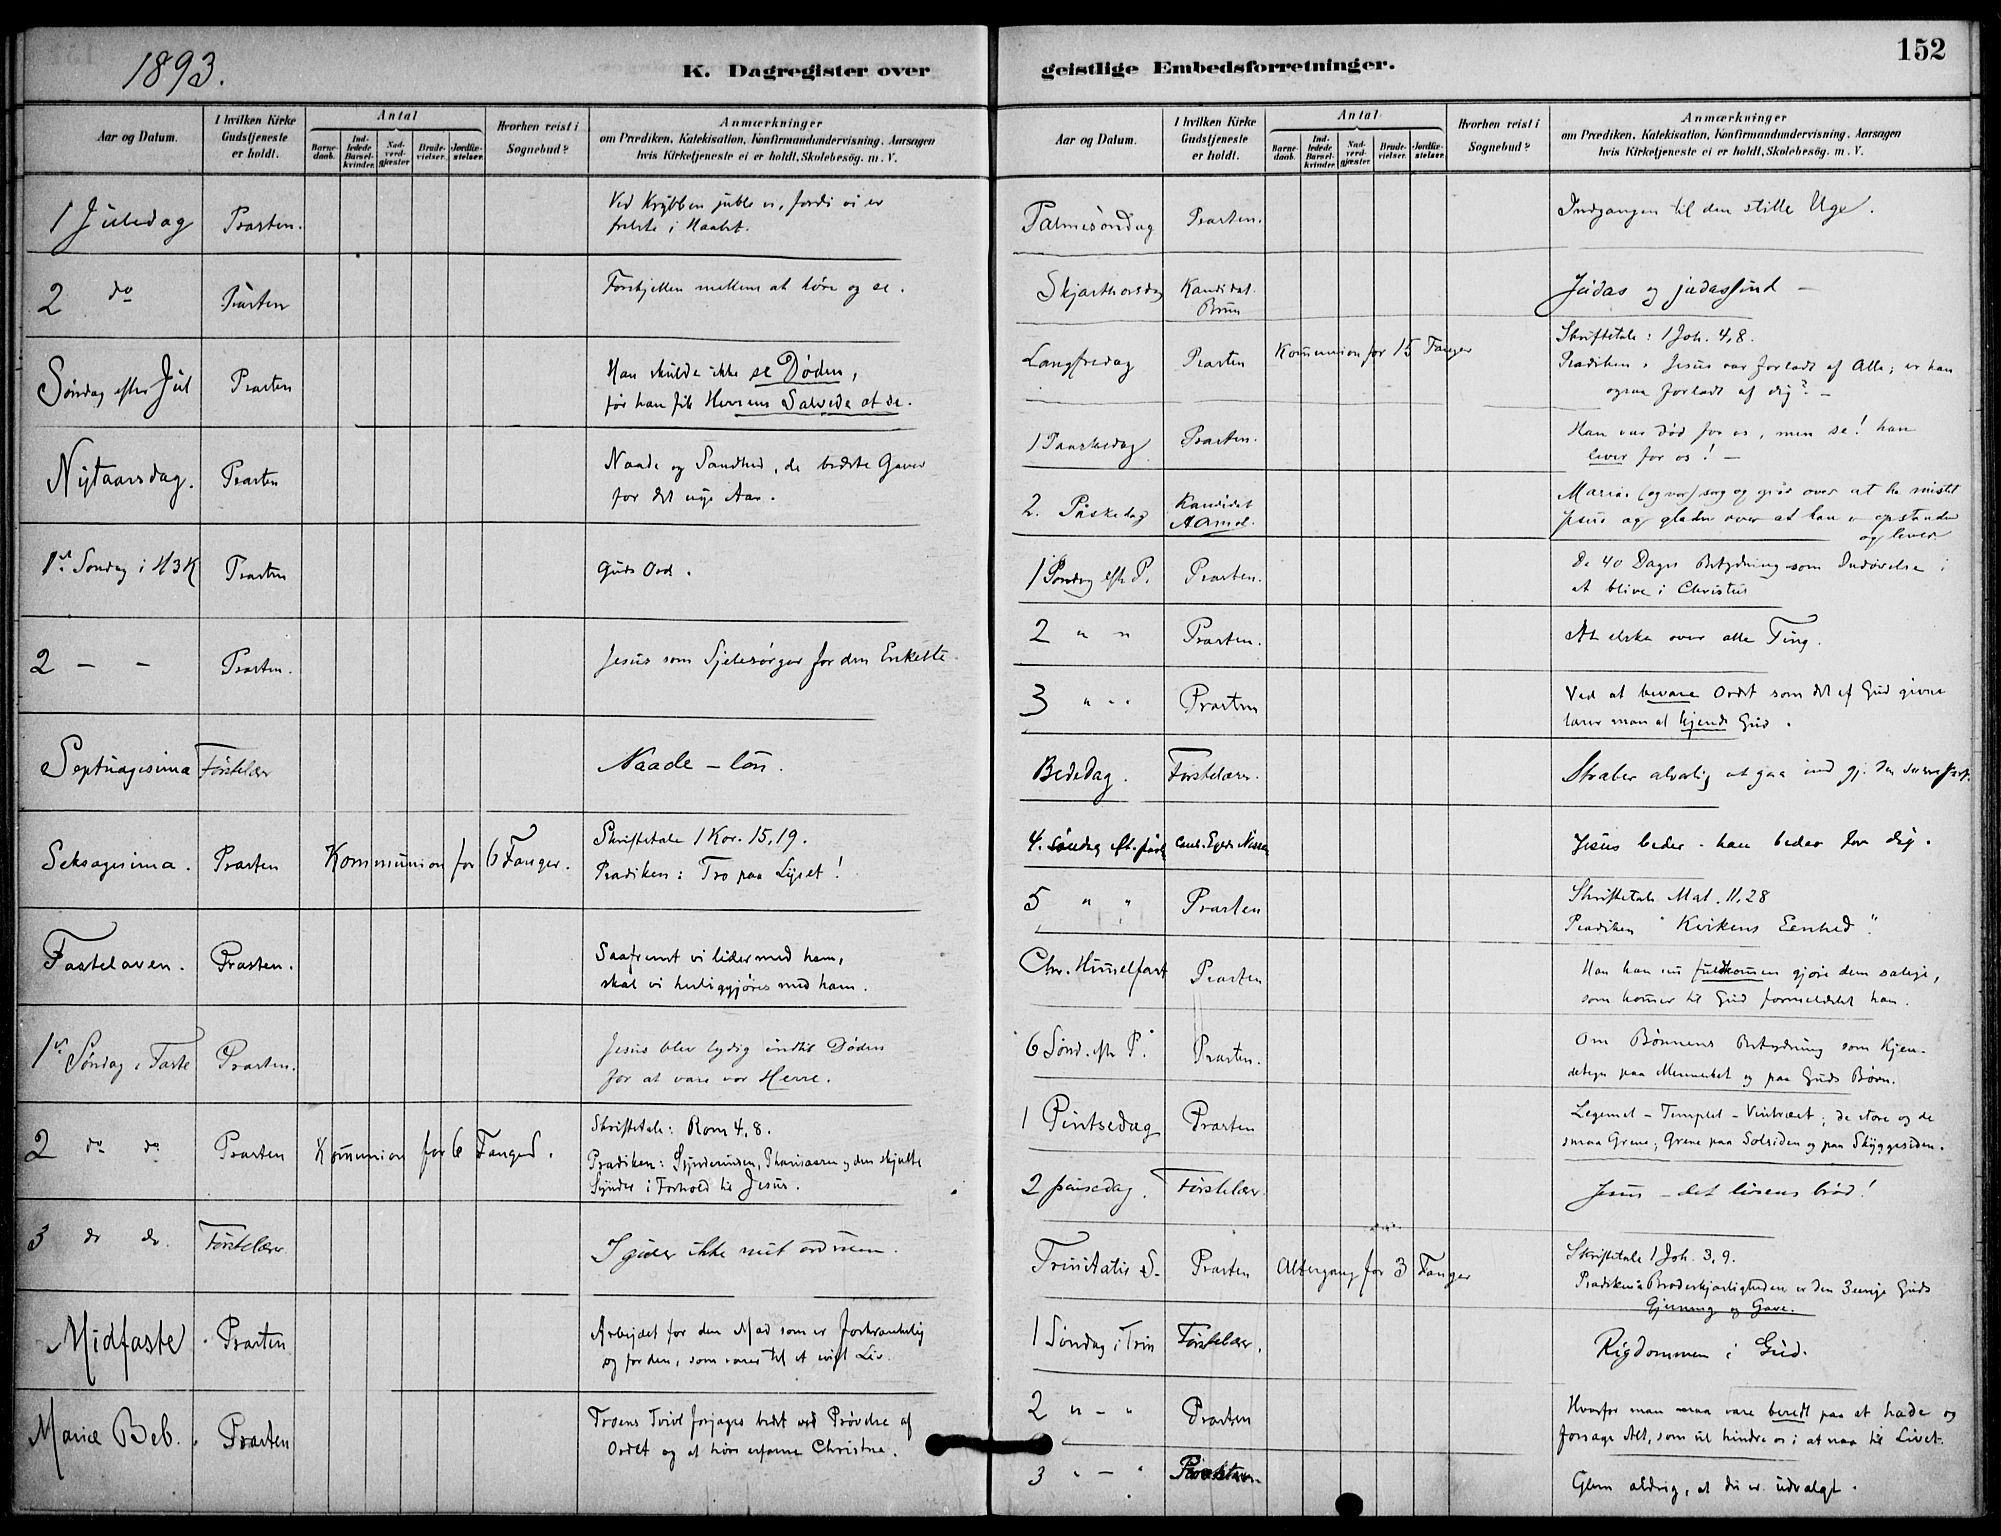 1893.
K. Dagregister over
geistlige Embedsforretninger.
152
Aar og Datum.
I hvilken Kirke
Gudstjeneste
er holdt.
Antal
Barne-
daab.
Ind-
ledede
Barsel-
kvinder.
Nad-
verd-
gjæster
Brude-
vielser.
Jordfæ-
stelser.
Hvorhen reist i
Sognebud?
Anmærkninger
om Prædiken, Katekisation, Konfirmandundervisning, Aarsagen
hvis Kirketjeneste ei er holdt, Skolebesøg. m. V.
1 Juledag Præsten.
Ved Krybben juble vi, fordi vi er
frelste i Haabet.
2 do Præsten
Forskjellen mellem at høre og se.
Søndag efter Jul Præsten
Han skulde ikke se Døden,
før han fik Herrens Salvede at se.
Nytaarsdag. Præsten
Naade og Sandhed, de bedste Gaver
for det nye Aar.
1ste Søndag i H3K Præsten
Guds Ord.
2 – – Præsten.
Jesus som Sjelesørger for den Enkelte.
Septuagesima Førstelær
Naade – løn.
Seksagesima. Præsten Kommunion for 6 Fanger.
Skriftetale 1 Kor. 15,19.
Prædiken: Tro paa Lyset!
Fastelaven. Præsten.
Saafremt vi lider med ham,
skal vi herliggjøres med ham.
1ste Søndag i Faste Præsten.
Jesus blev lydig indtil Døden
for at være vor Herre.
2 do do Præsten Kommunion for 6 Fanger.
Skriftetale: Rom 4,8.
Prædiken: Synderinden, Pharisæeren og den skjulte
Synder i Forhold til Jesus.
3 do do. Førstelærer
I gider ikke mit ord
Midfaste Præsten
Arbejdet for den Mad som er forkrænkelig
og for den, som varer til et evigt Liv.
Mariæ Beb. Præsten
Troens Tvivl forjages bedst ved Prøvelse af
Ordet og at høre erfarne Christne.
Aar og Datum.
I hvilken Kirke
Gudstjeneste
er holdt.
Antal
Barne-
daab.
Ind-
ledede
Barsel-
kvinder.
Nad-
verd-
gjæster.
Brude-
vielser.
Jordfæ-
stelser.
Hvorhen reist i
Sognebud?
Anmærkninger
om Prædiken, Katekisation, Konfirmandundervisning, Aarsagen
hvis Kirketjeneste ei er holdt, Skolebesøg. m. V.
Palmesøndag Præsten.
Indgangen til den stille Uge.
Skjærthorsdag Kandidat
Brun
Judas og judassind –
Langfredag Præsten Kommunion for 15 Fanger
Skriftetale: 1 Joh. 4,8.
Prædiken: Jesus var forladt af Alle; er han
ogsaa forladt af dig? –
1 Paaskedag Præsten.
Han var død for os, men se! han
lever for os! –
2. Påskedag Kandidat
Aamot.
Marias (og vor) sorg og gråd over at ha mistet
Jesus og glæden over at han er opstanden
og lever
1 Søndag eft P. Præsten.
De 40 Dages Betydning som Indøvelse i
at blive i Christus
2 " " Præsten.
At elske over alle Ting.
3 " " Præsten
Ved at bevare Ordet som det af Gud givne
lærer man at kjende Gud.
Bededag. Førstelærer.
Stræber alvorlig at gaa ind gj. den snævre Port.
4. søndag eft. påske Cand. Egede Nissen
Jesus beder – han beder for dig.
5 " " Præsten
Skriftetale Mat. 11,28
Prædiken "Kirkens Eenhed".
Chr. Himmelfart Præsten
Han kan nu fuldkommen gjøre dem salige,
som kommer til Gud formedelst han.
6 Sønd. eft P. Præsten.
Om Bønnens Betydning som Kjen-
detegn paa Mennesket og paa Guds Børn.
1 Pintsedag Præsten
Legemet – Templet – Vintræet; de store og de
smaa Grene; Grene paa Solsiden og paa Skyggesiden.
2 pinsedag. Førstelær.
Jesus – det livsens brød!
Trinitatis S. Præsten Altergang for 3 Fanger
Skriftetale 1 Joh. 3,9.
Prædiken: Broderkjærligheden er den 3enige Guds
Gjerning og Gave.
1 Søndag i Trin Førstelær.
Rigdommen i Gud.
2 " – " Præsten
Hvorfor man maa være beredt paa at hade og
forsage Alt, som vil hindre os i at naa til Livet.
3 " – " Præsten
Glem aldrig, at du er udvalgt.